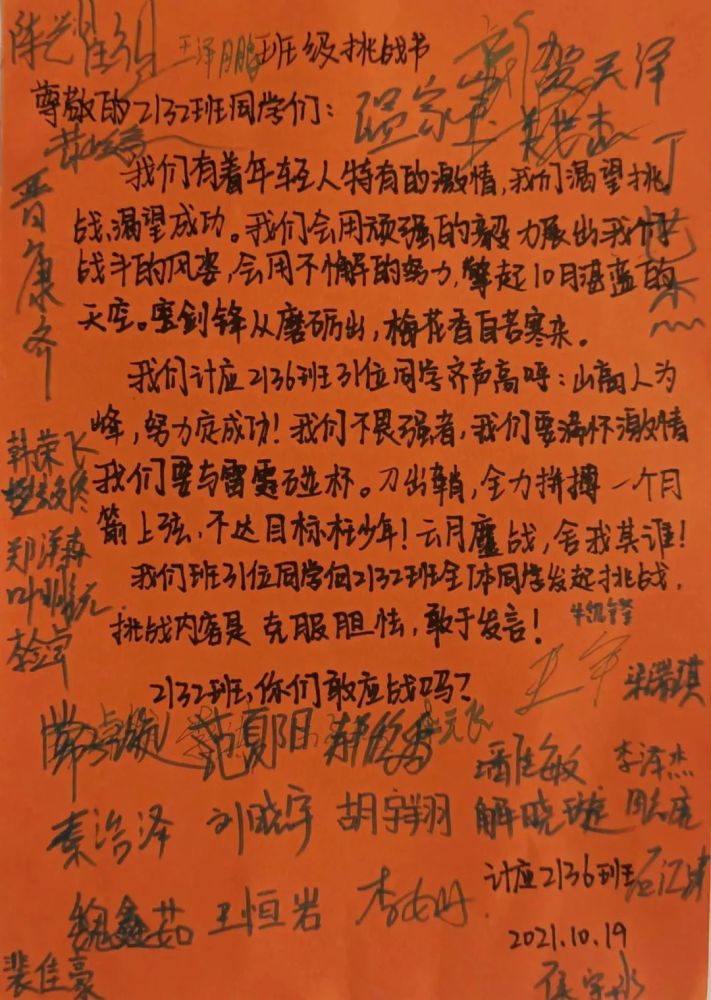 班级挑战书
王泽鹏
贺天泽
尊敬的2132班同学们：
温家宝
晋康齐
我们有着年轻人特有的激情，我们渴望挑
战、渴望成功。我们会用顽强的毅力展出我们
战斗的风姿，会用不懈的努力，擎起10月湛蓝的
天空。宝剑锋从磨砺出，梅花香自苦寒来。
我们计应2136班31位同学齐声高呼：山高人为
峰，努力定成功！我们不畏强者，我们要满怀激情
我们要与雷霆碰杯。刀出鞘，全力拼搏一个月
箭上弦，不达目标枉少年！云月鏖战，舍我其谁！
我们班31位同学向2132班全体同学发起挑战，
挑战内容是 克服胆怯，敢于发言！
2132班，你们敢应战吗？
韩荣飞
郑泽森
梁常琪
范夏阳
潘佳敏
李泽杰
秦浩泽
刘晓宇
胡宇翔
解晓璇
计应2136班
魏鑫茹
王恒岩
2021.10.19
裴佳豪